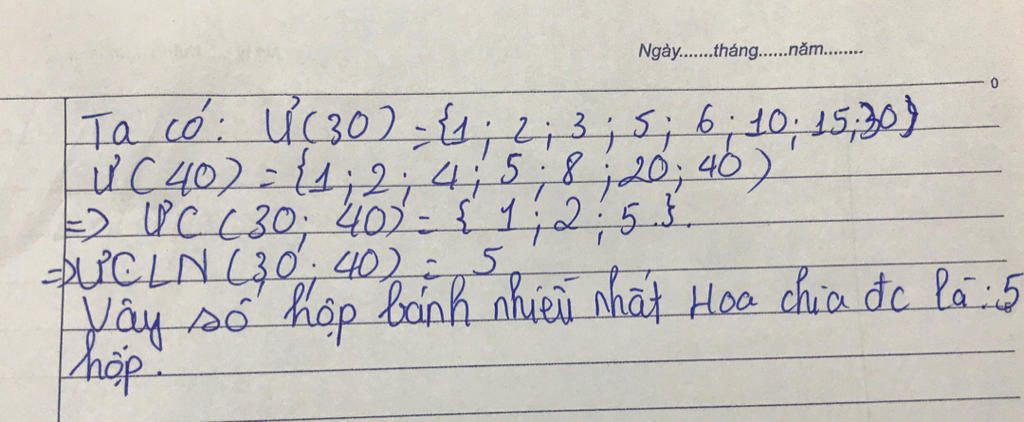 Ngày.......tháng......năm........
0
Ta có: Ư(30) = {1; 2; 3; 5; 6; 10; 15; 30}
Ư(40) = {1; 2; 4; 5; 8; 20; 40)
=> ƯC (30; 40) = { 1; 2; 5 }.
=> ƯCLN (30; 40) = 5
Vậy số hộp bánh nhiều nhất Hoa chia đc là: 5
hộp.